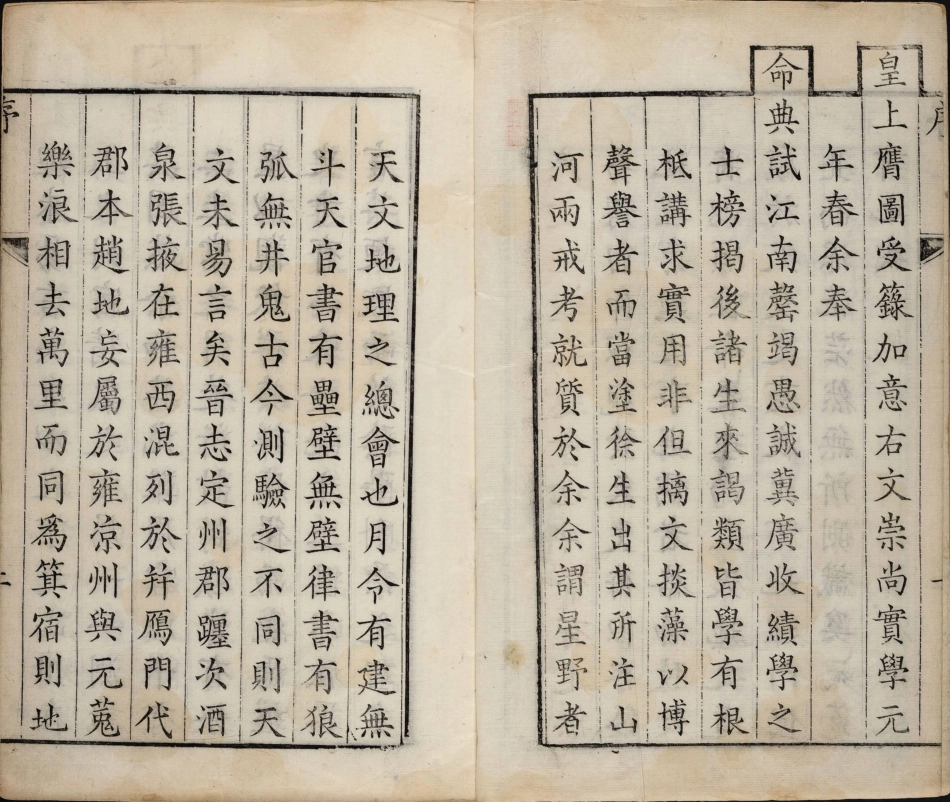 皇上膺圖受籙加意右文崇尚實學元
年春余奉
命典試江南罄竭愚誠冀廣收績學之
士榜揭後諸生來謁類皆學有根
柢講求實用非但摛文掞藻以博
聲譽者而當塗徐生出其所注山
河兩戒考就質於余余謂星野者
天文地理之總會也月令有建無
斗天官書有壘壁無壁律書有狼
弧無井鬼古今測驗之不同則天
文未易言矣晉志定州郡躔次酒
泉張掖在雍西混列於并鴈門代
郡本趙地妄屬於雍涼州與元菟
樂浪相去萬里而同爲箕宿則地
序
二